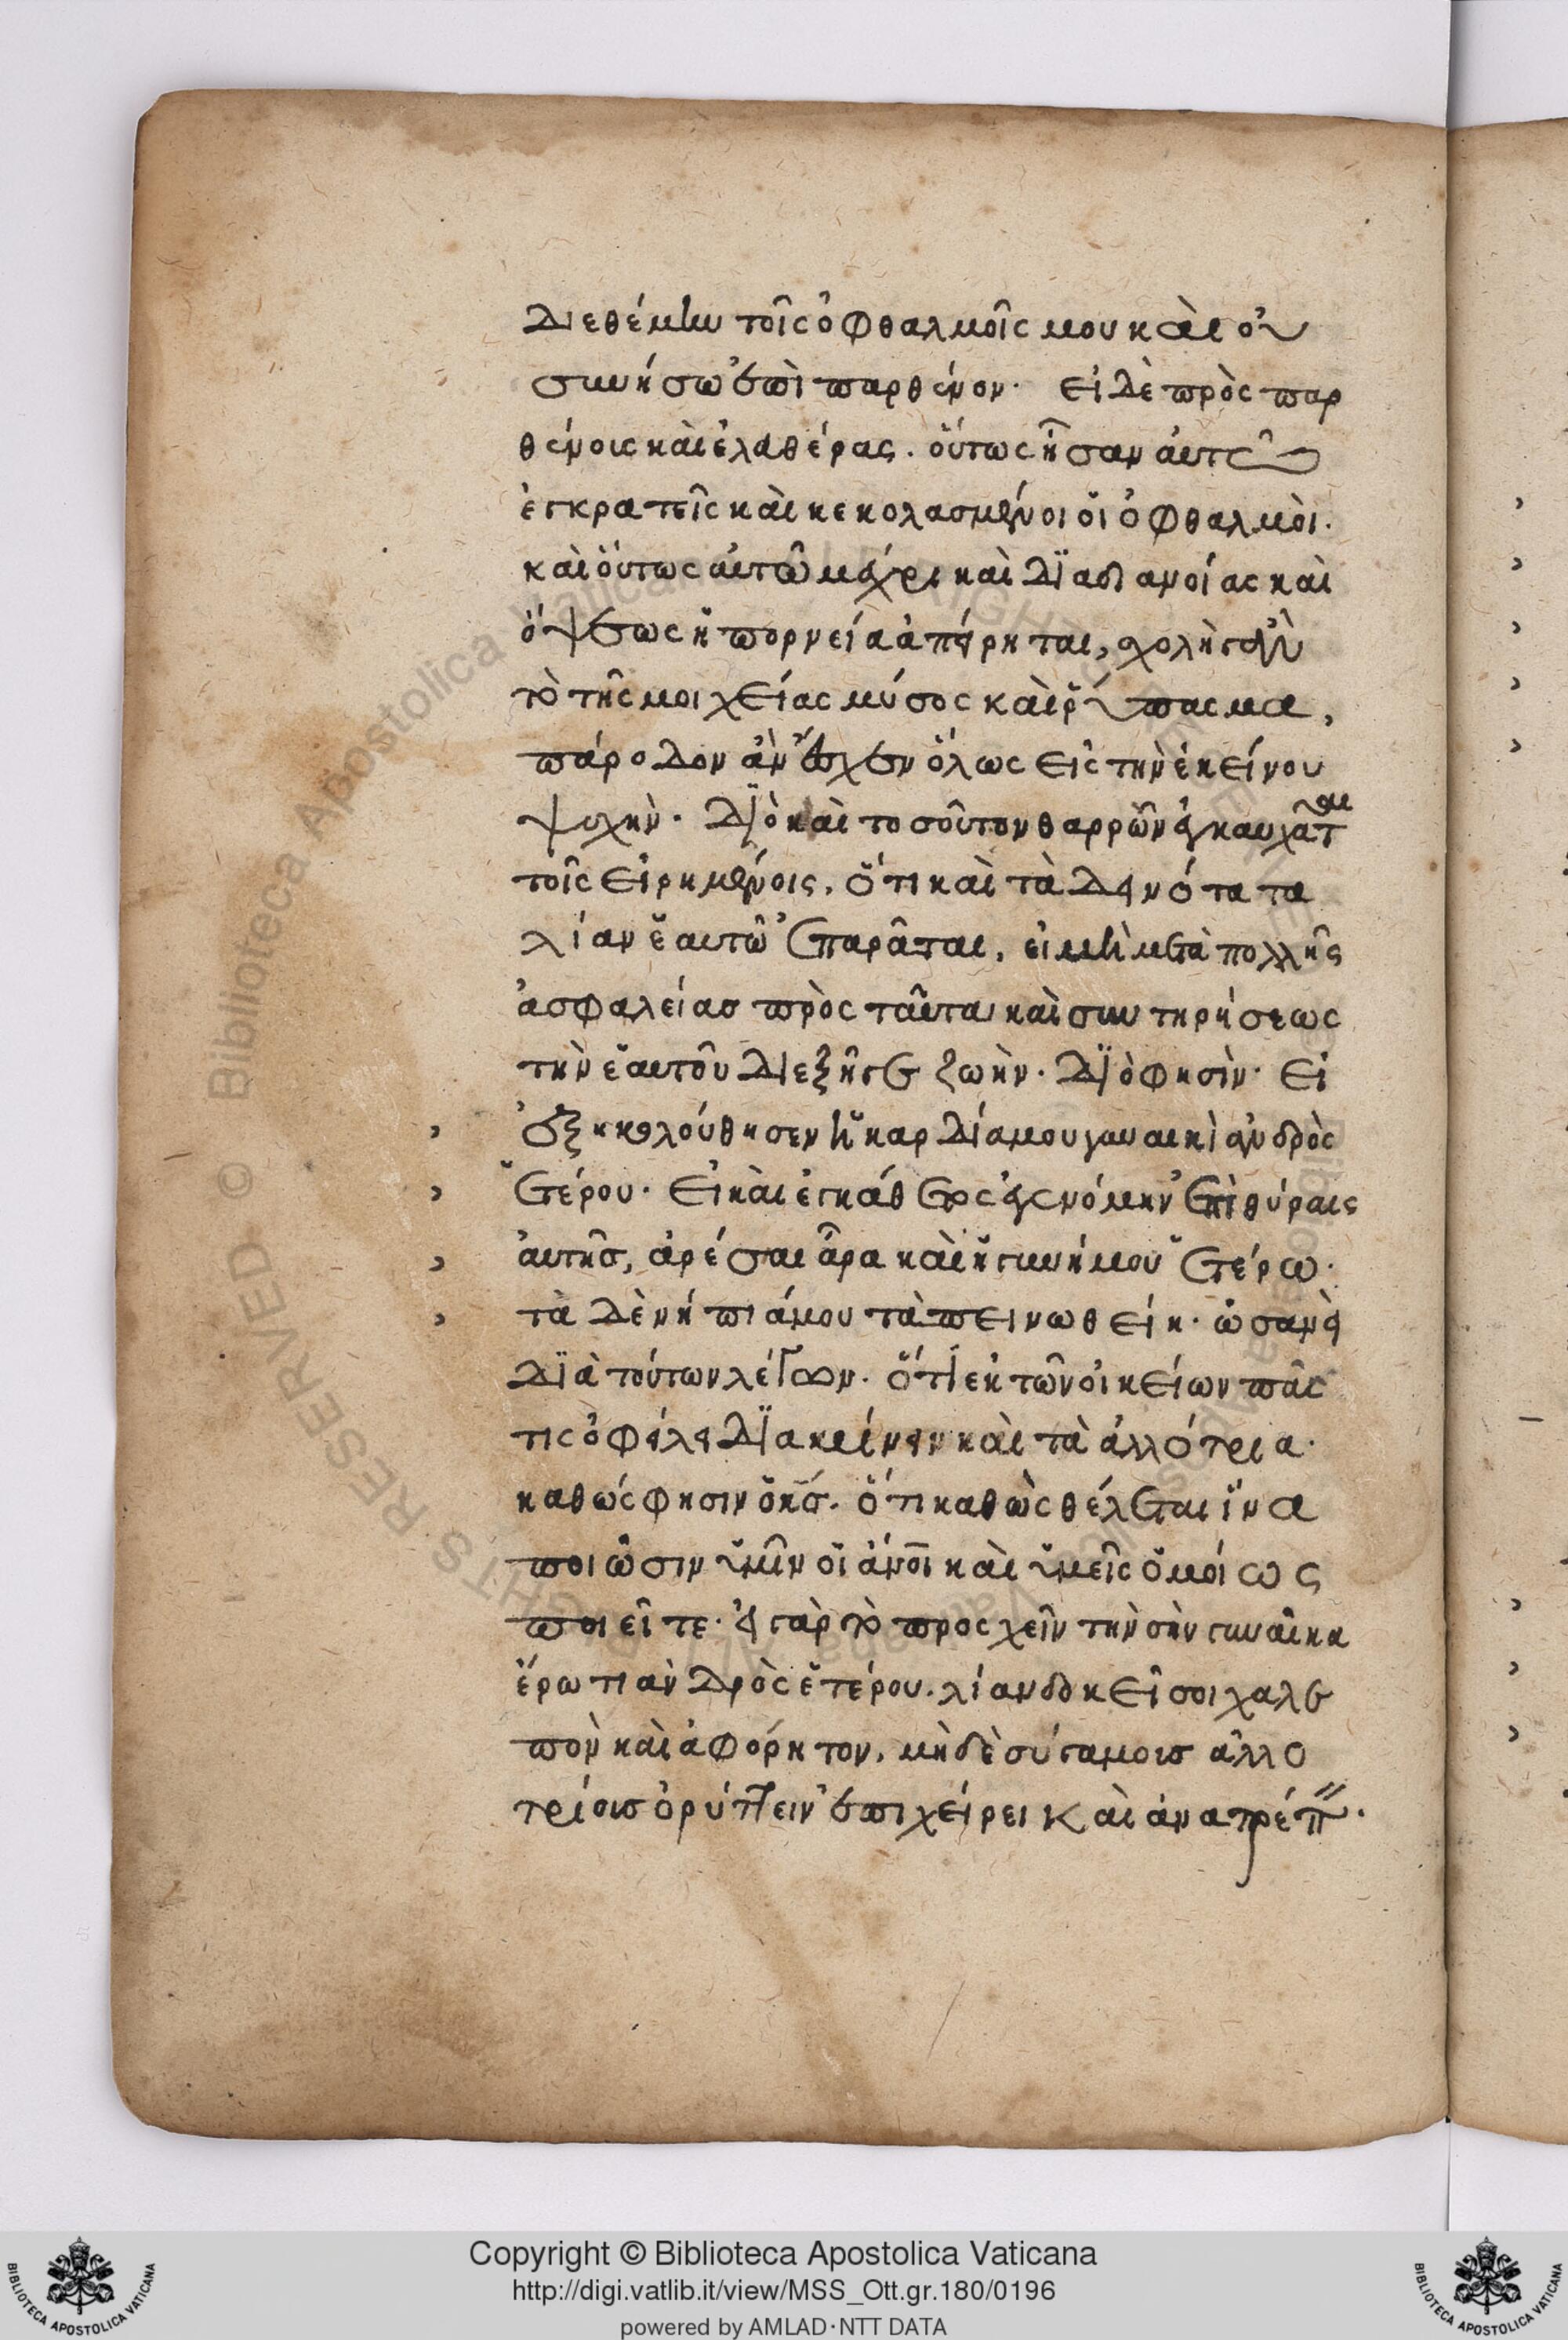 διεθέμην τοῖς ὀφθαλμοῖς μου καὶ οὐ
συνήσω ἐπὶ παρθένον· εἰ δὲ πρὸς παρ
θένοις καὶ ἐλευθέρας. οὕτως ἦσαν αὐτῶ
ἐγκρατεῖς καὶ κεκολασμένοι οἱ ὀφθαλμοὶ.
καὶ οὕτως αὐτῶ μέχρι καὶ διανοίας καὶ
ὄψεως ἡ πορνεία ἀπείρηται, σχολῆ γ' ἂν
τὸ τῆς μοιχείας μύσος καὶ ῥύπασμα,
πάροδον ἂν ἔσχεν ὅλως εἰς τὴν ἐκείνου
ψυχὴν. διὸ καὶ τοσοῦτον θαρρῶν ἐγκαυχᾶται
τοῖς εἰρημένοις, ὅτι καὶ τὰ δεινότατα
λίαν ἑαυτῶ ἐπαρᾶται, εἰ μὴ μετὰ πολλῆς
ἀσφαλείας πρὸς ταῦτα καὶ συντηρήσεως
τὴν ἑαυτοῦ διεξῆγε ζωὴν. διὸ φησὶν· εἰ
ἐξηκολούθησεν ἡ καρδία μου γυναικὶ ἀνδρὸς
ἑτέρου· εἰ καὶ ἐγκάθετος ἐγενόμην ἐπὶ θύραις
αὐτῆς, ἀρέσαι ἆρα καὶ ἡ γυνή μου ἑτέρω·
τὰ δὲ νήπιά μου ταπεινωθείη· ὡσανεὶ
διὰ τούτων λέγων. ὅτι ἐκ τῶν οἰκείων πᾶς
τις ὀφείλει διακρίνειν καὶ τὰ ἀλλότρια·
καθώς φησιν ὁ κς. ὅτι καθὼς θέλεται ἵνα
ποιῶσιν ὑμῖν οἱ ἀνοι καὶ ὑμεῖς ὁμοίως
ποιεῖτε· εἰ γὰρ τὸ προσχεῖν τὴν σὴν γυναῖκα
ἔρωτι ἀνδρὸς ἑτέρου. λίαν δοκεῖ σοι χαλε
πὸν καὶ ἀφόρητον, μὴδὲ σύ γάμοις ἀλλο
τρίοις ὀρύττειν ἐπιχείρει καὶ ἀνατρέπειν.
Copyright © Biblioteca Apostolica Vaticana
http://digi.vatlib.it/view/MSS_Ott.gr.180/0196
powered by AMLAD·NTT DATA